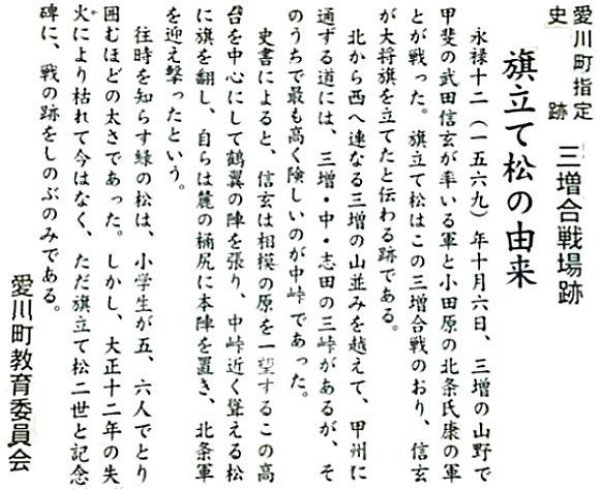 愛川町指定
史跡　三増合戦場跡
旗立て松の由来
永禄十二（一五六九）年十月六日、三増の山野で
甲斐の武田信玄が率いる軍と小田原の北条氏康の軍
とが戦った。旗立て松はこの三増合戦のおり、信玄
が大将旗を立てたと伝わる跡である。
北から西へ連なる三増の山並みを越えて、甲州に
通ずる道には、三増・中・志田の三峠があるが、そ
のうちで最も高く険しいのが中峠であった。
史書によると、信玄は相模の原を一望するこの高
台を中心にして鶴翼の陣を張り、中峠近く聳える松
に旗を翻し、自らは麓の桶尻に本陣を置き、北条軍
を迎え撃ったという。
往時を知らす緑の松は、小学生が五、六人でとり
囲むほどの太さであった。しかし、大正十二年の失
火により枯れて今はなく、ただ旗立て松二世と記念
碑に、戦の跡をしのぶのみである。
愛川町教育委員会